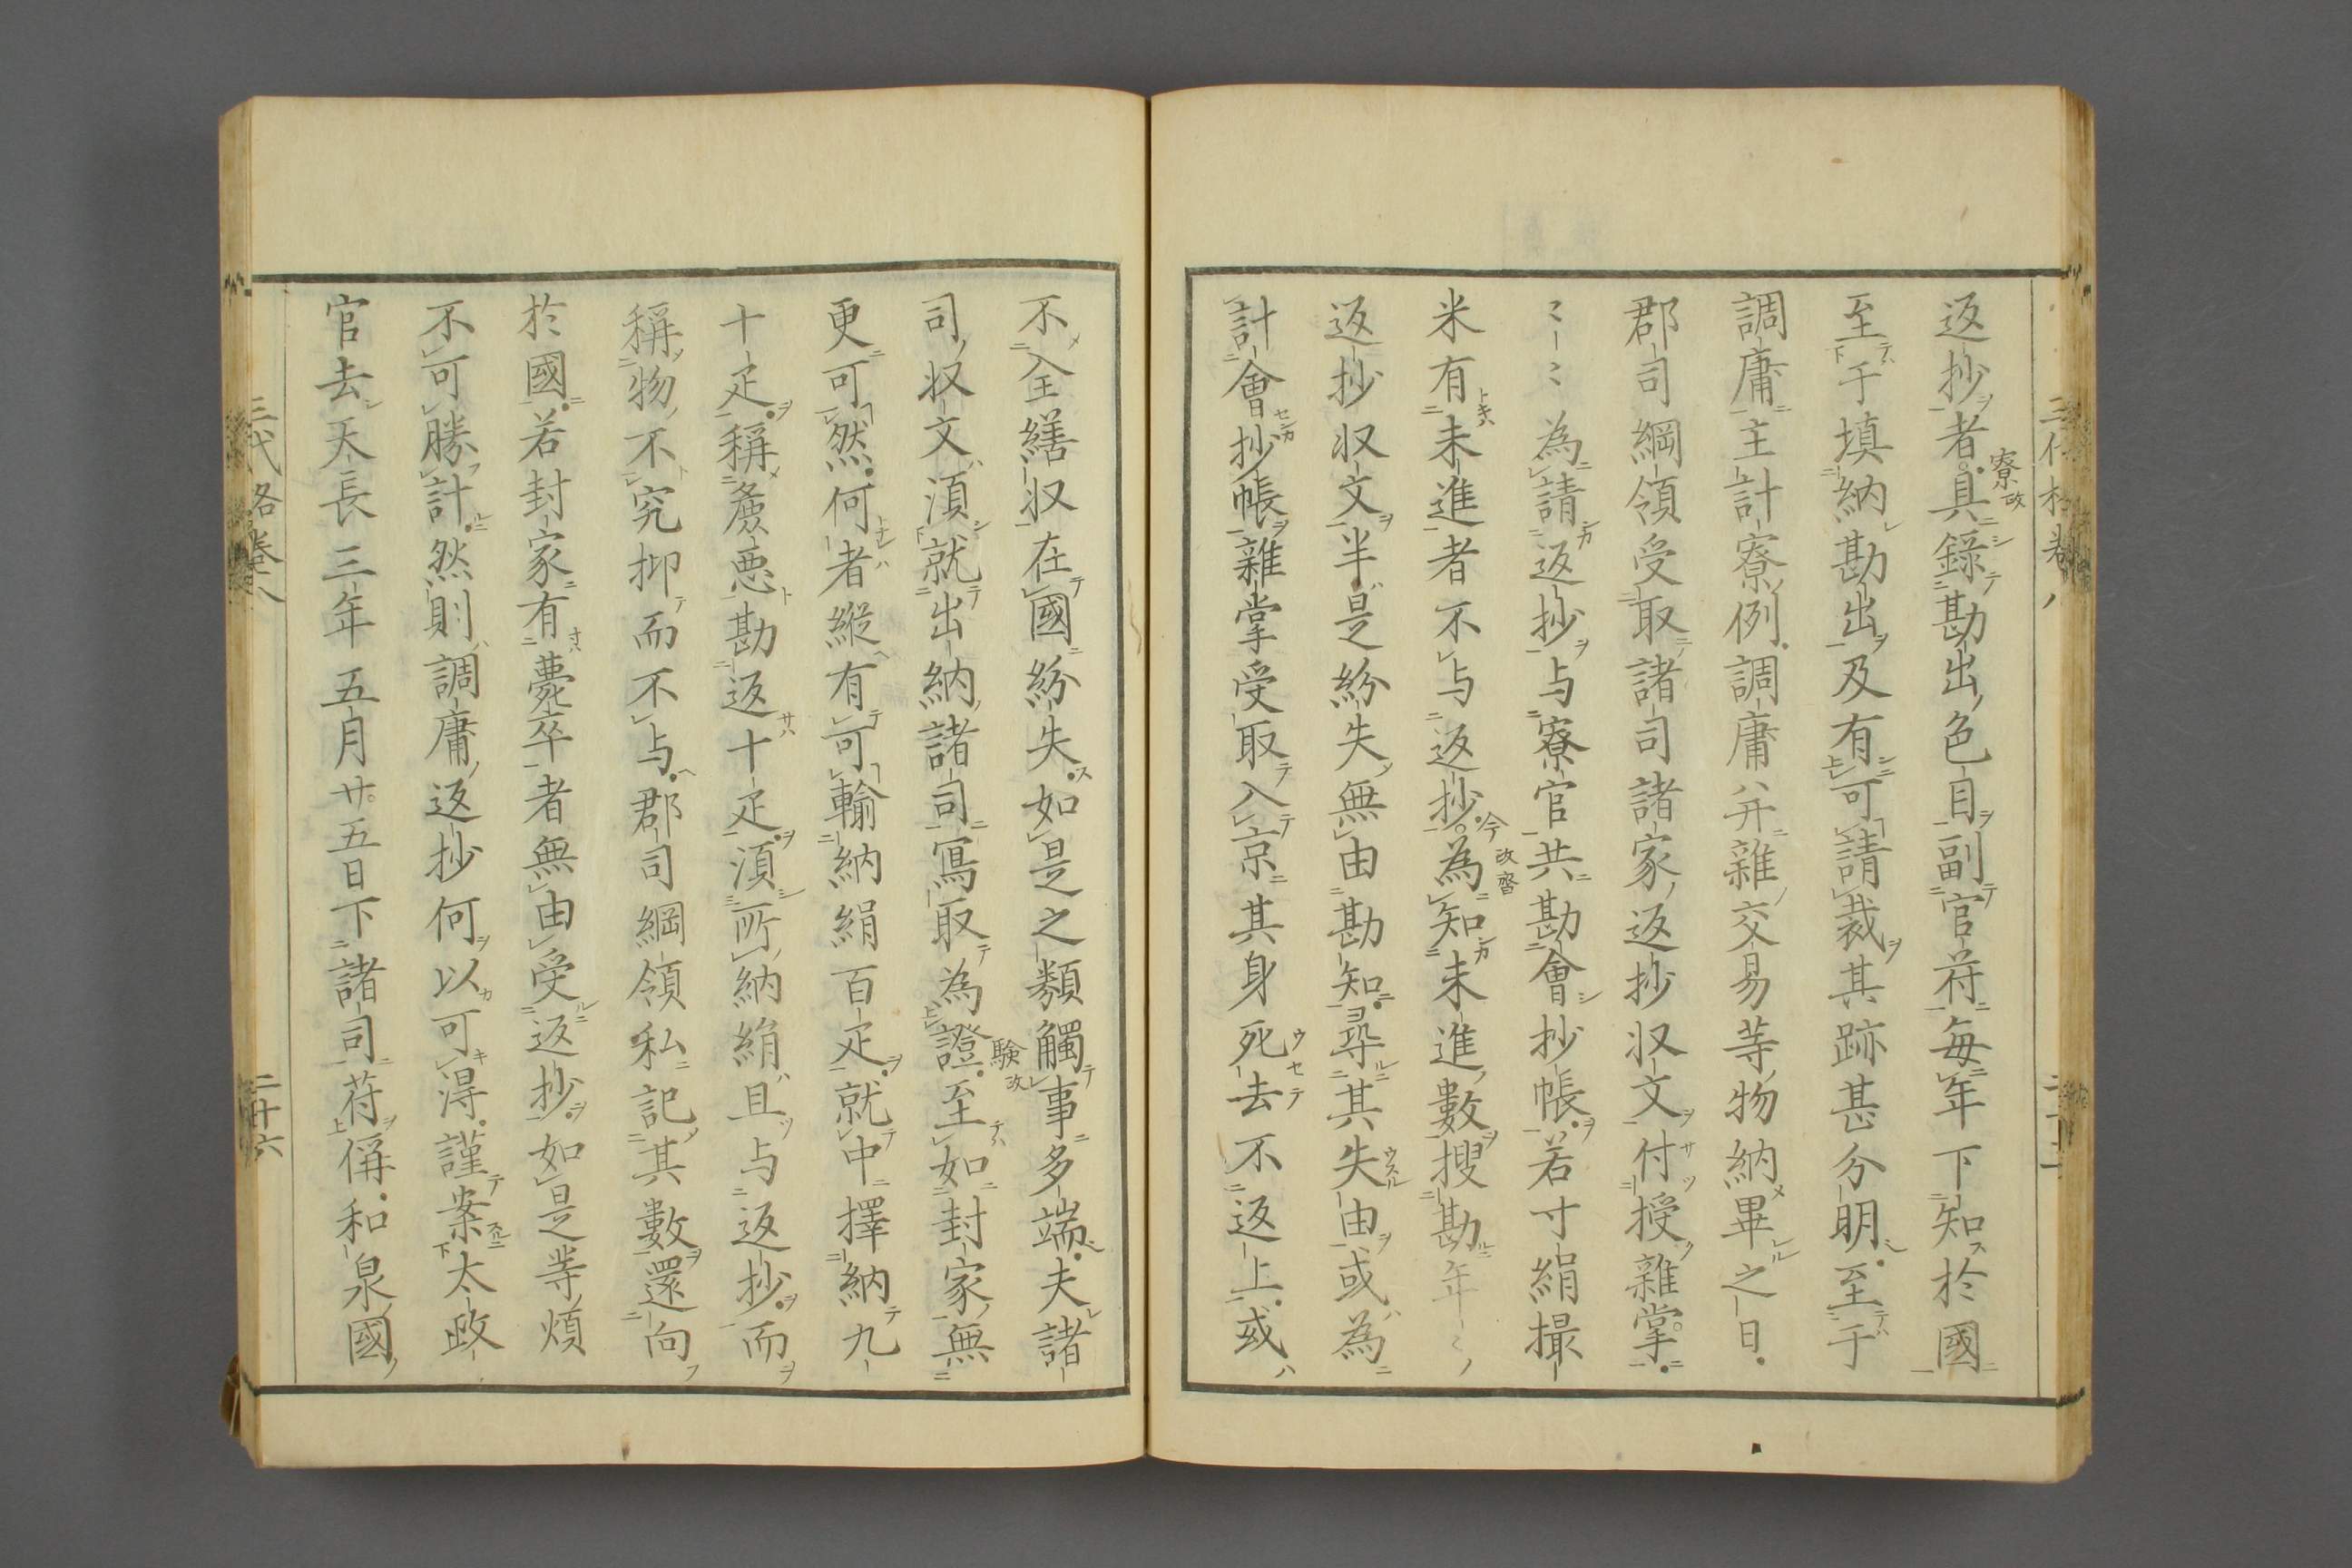 返抄者具錄勘出色目副官符每年下知於國
至于填納勘出及有可請裁其跡甚分明至于
調庸主計寮例調庸幷雜交易等物納畢之日
郡司綱領受取諸司諸家返抄収文付授雜掌
〻〻為請返抄与寮官共勘會抄帳若寸絹撮
米有未進者不与返抄為知未進數搜勘年〻
返抄収文半是紛失無由勘知尋其失由或為
計會抄帳雜掌受取入京其身死去不返上或
不全繕収在國紛失如是之類觸事多端夫諸
司収文須就出納諸司寫取為證至如封家無
更可然何者縱有可輸納絹百疋就中擇納九
十疋稱麁惡勘返十疋須所納絹且与返抄而
稱物不究抑而不与郡司綱領私記其數還向
於國若封家有薨卒者無由受返抄如是等煩
不可勝計然則調庸返抄何以可得謹案太政
官去天長三年五月廿五日下諸司符偁和泉國
三代格卷八
二十六